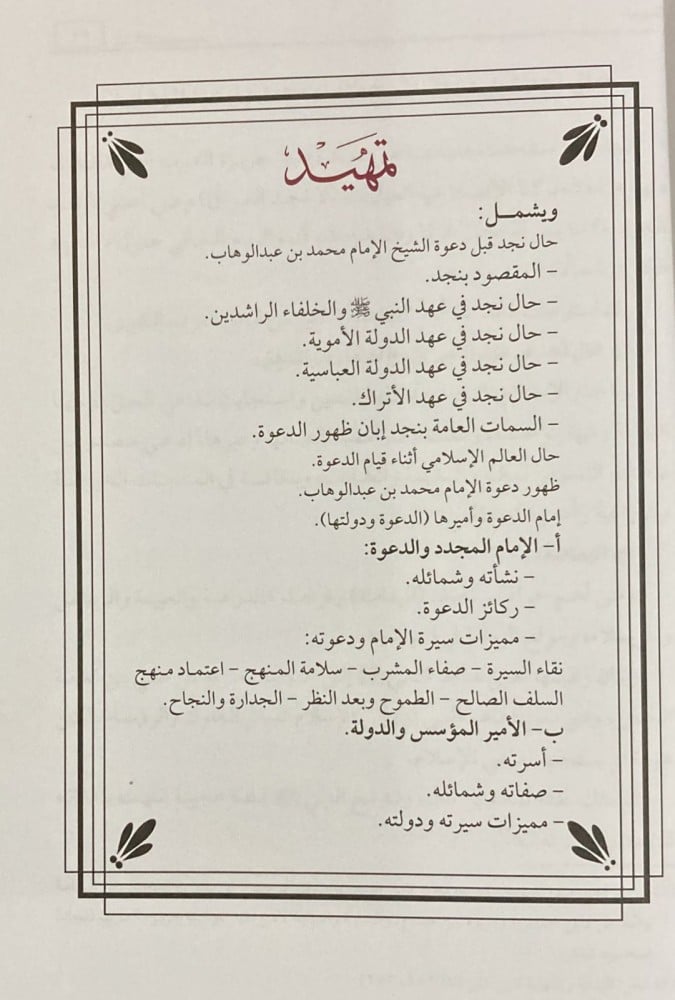 تمهيد
ويشمل:
حال نجد قبل دعوة الشيخ الإمام محمد بن عبدالوهاب.
- المقصود بنجد.
- حال نجد في عهد النبي ﷺ والخلفاء الراشدين.
- حال نجد في عهد الدولة الأموية.
- حال نجد في عهد الدولة العباسية.
- حال نجد في عهد الأتراك.
- السمات العامة بنجد إبان ظهور الدعوة.
حال العالم الإسلامي أثناء قيام الدعوة.
ظهور دعوة الإمام محمد بن عبدالوهاب.
إمام الدعوة وأميرها (الدعوة ودولتها).
أ- الإمام المجدد والدعوة:
- نشأته وشمائله.
- ركائز الدعوة.
- مميزات سيرة الإمام ودعوته:
نقاء السيرة - صفاء المشرب - سلامة المنهج - اعتماد منهج
السلف الصالح - الطموح وبعد النظر - الجدارة والنجاح.
ب- الأمير المؤسس والدولة.
- أسرته.
- صفاته وشمائله.
- مميزات سيرته ودولته.